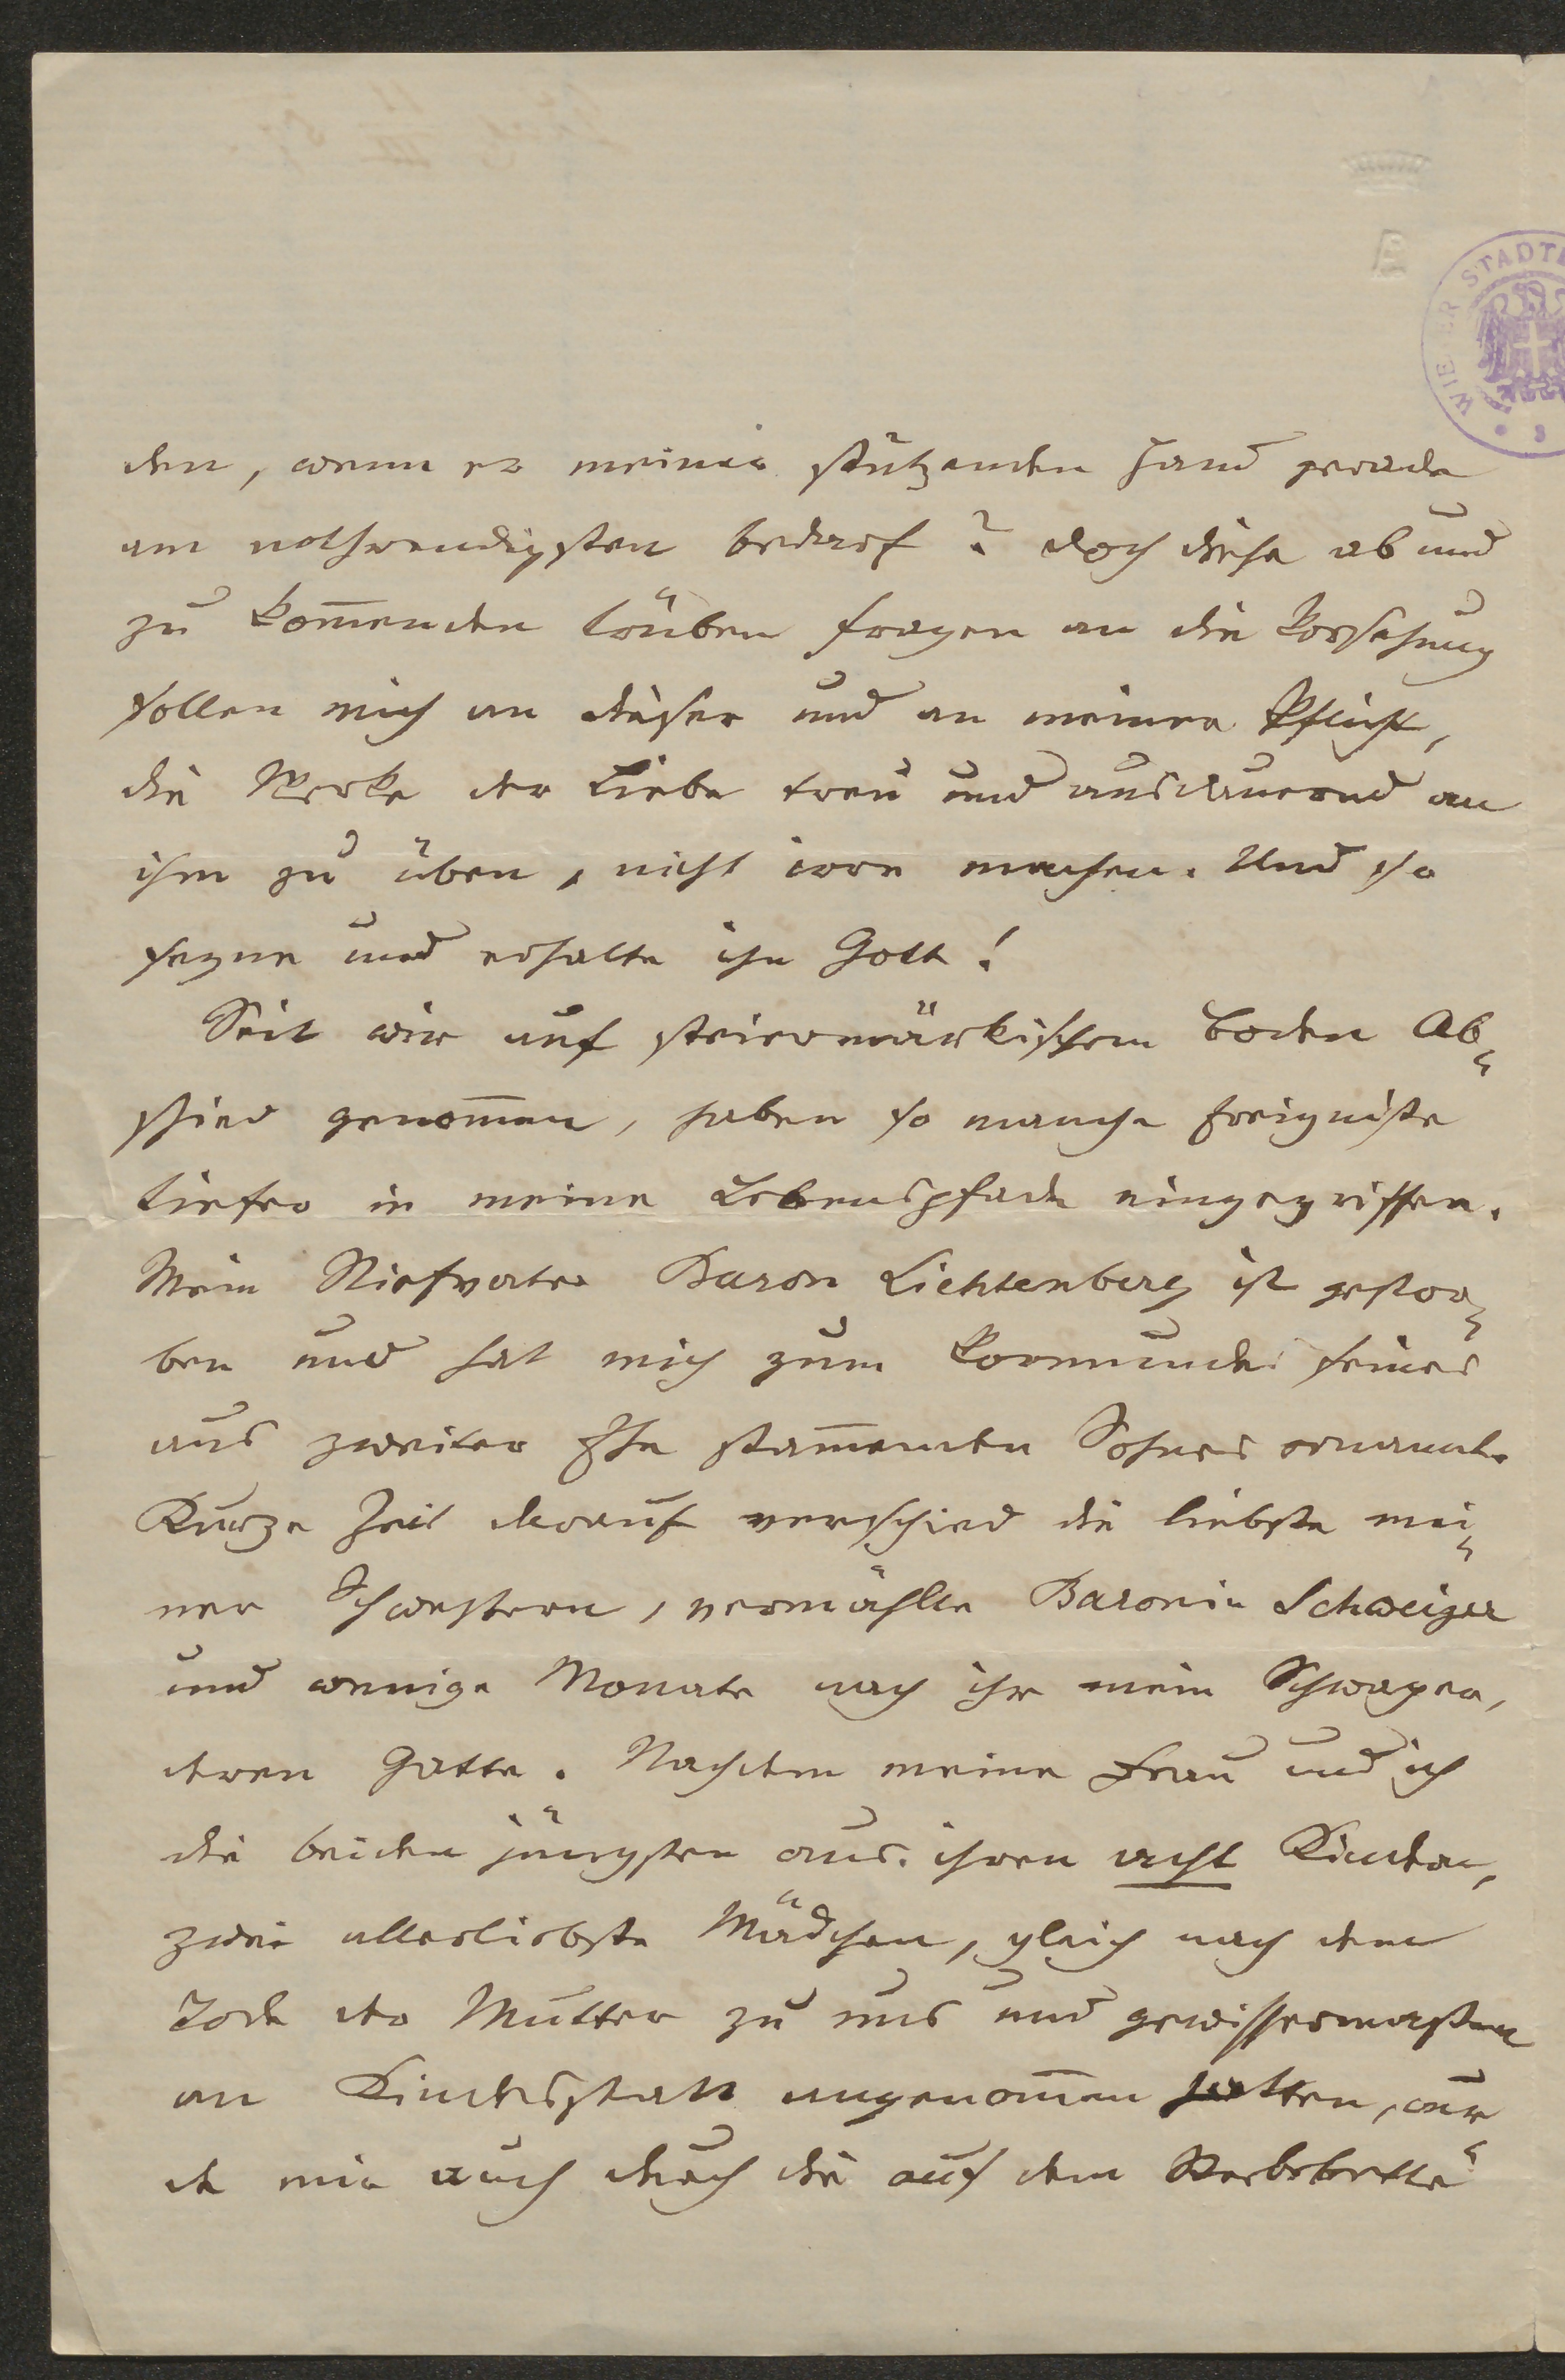 WIENER STADT
den, wenn er meiner stützenden Hand gerade
am nothwendigsten bedarf? Doch diese ab und
zu kom̅enden trüben Fragen an die Vorsehung
sollen mich an dieser und an meiner Pflicht,
die Werke der Liebe treu und ausdauernd an
ihm zu üben, nicht irre machen. Und so
segne und erhalte ihn Gott!
Seit wir auf steiermärkischem Boden Ab-
schied genom̅en, haben so manche Ereigniße
tiefer in meine Lebenspfade eingegriffen.
Mein Stiefvater Baron Lichtenberg ist gestor-
ben und hat mich zum Vormunde seines
aus zweiter Ehe stam̅enden Sohnes ernannt.
Kurze Zeit darauf verschied die liebste mei-
ner Schwestern, vermählte Baronin Schweiger
und wenige Monate nach ihr mein Schwager,
deren Gatte. Nachdem meine Frau und ich
die beiden jüngsten aus ihren acht Kindern,
zwei allerliebste Mädchen, gleich nach dem
Tode der Mutter zu uns und gewissermaßen
an Kindesstatt angenom̅en hatten, wur-
de mir auch durch die auf dem Sterbebette